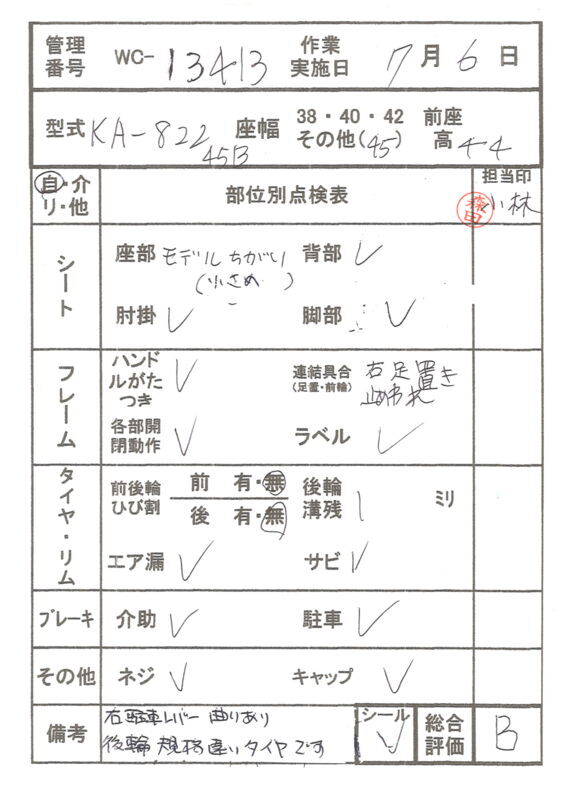 管理番号 WC-13413 作業実施日 7月6日
型式 KA-822 45B 座幅 38・40・42 その他(45) 前座高 44
自・介 リ・他 部位別点検表 担当印 小林 森田
シート 座部 モデルちがい (小さめ) 背部 ✓
肘掛 ✓ 脚部 ✓
フレーム ハンドルがたつき ✓ 連結具合 (足置・前輪) 右足置き
各部開閉動作 ✓ ラベル ✓
タイヤ・リム 前後輪ひび割 前 有・無 後 有・無 後輪溝残 1 ミリ
エア漏 ✓ サビ ✓
ブレーキ 介助 ✓ 駐車 ✓
その他 ネジ ✓ キャップ ✓
備考 右駐車レバー曲りあり
後輪規格違いタイヤです
シール ✓ 総合評価 B